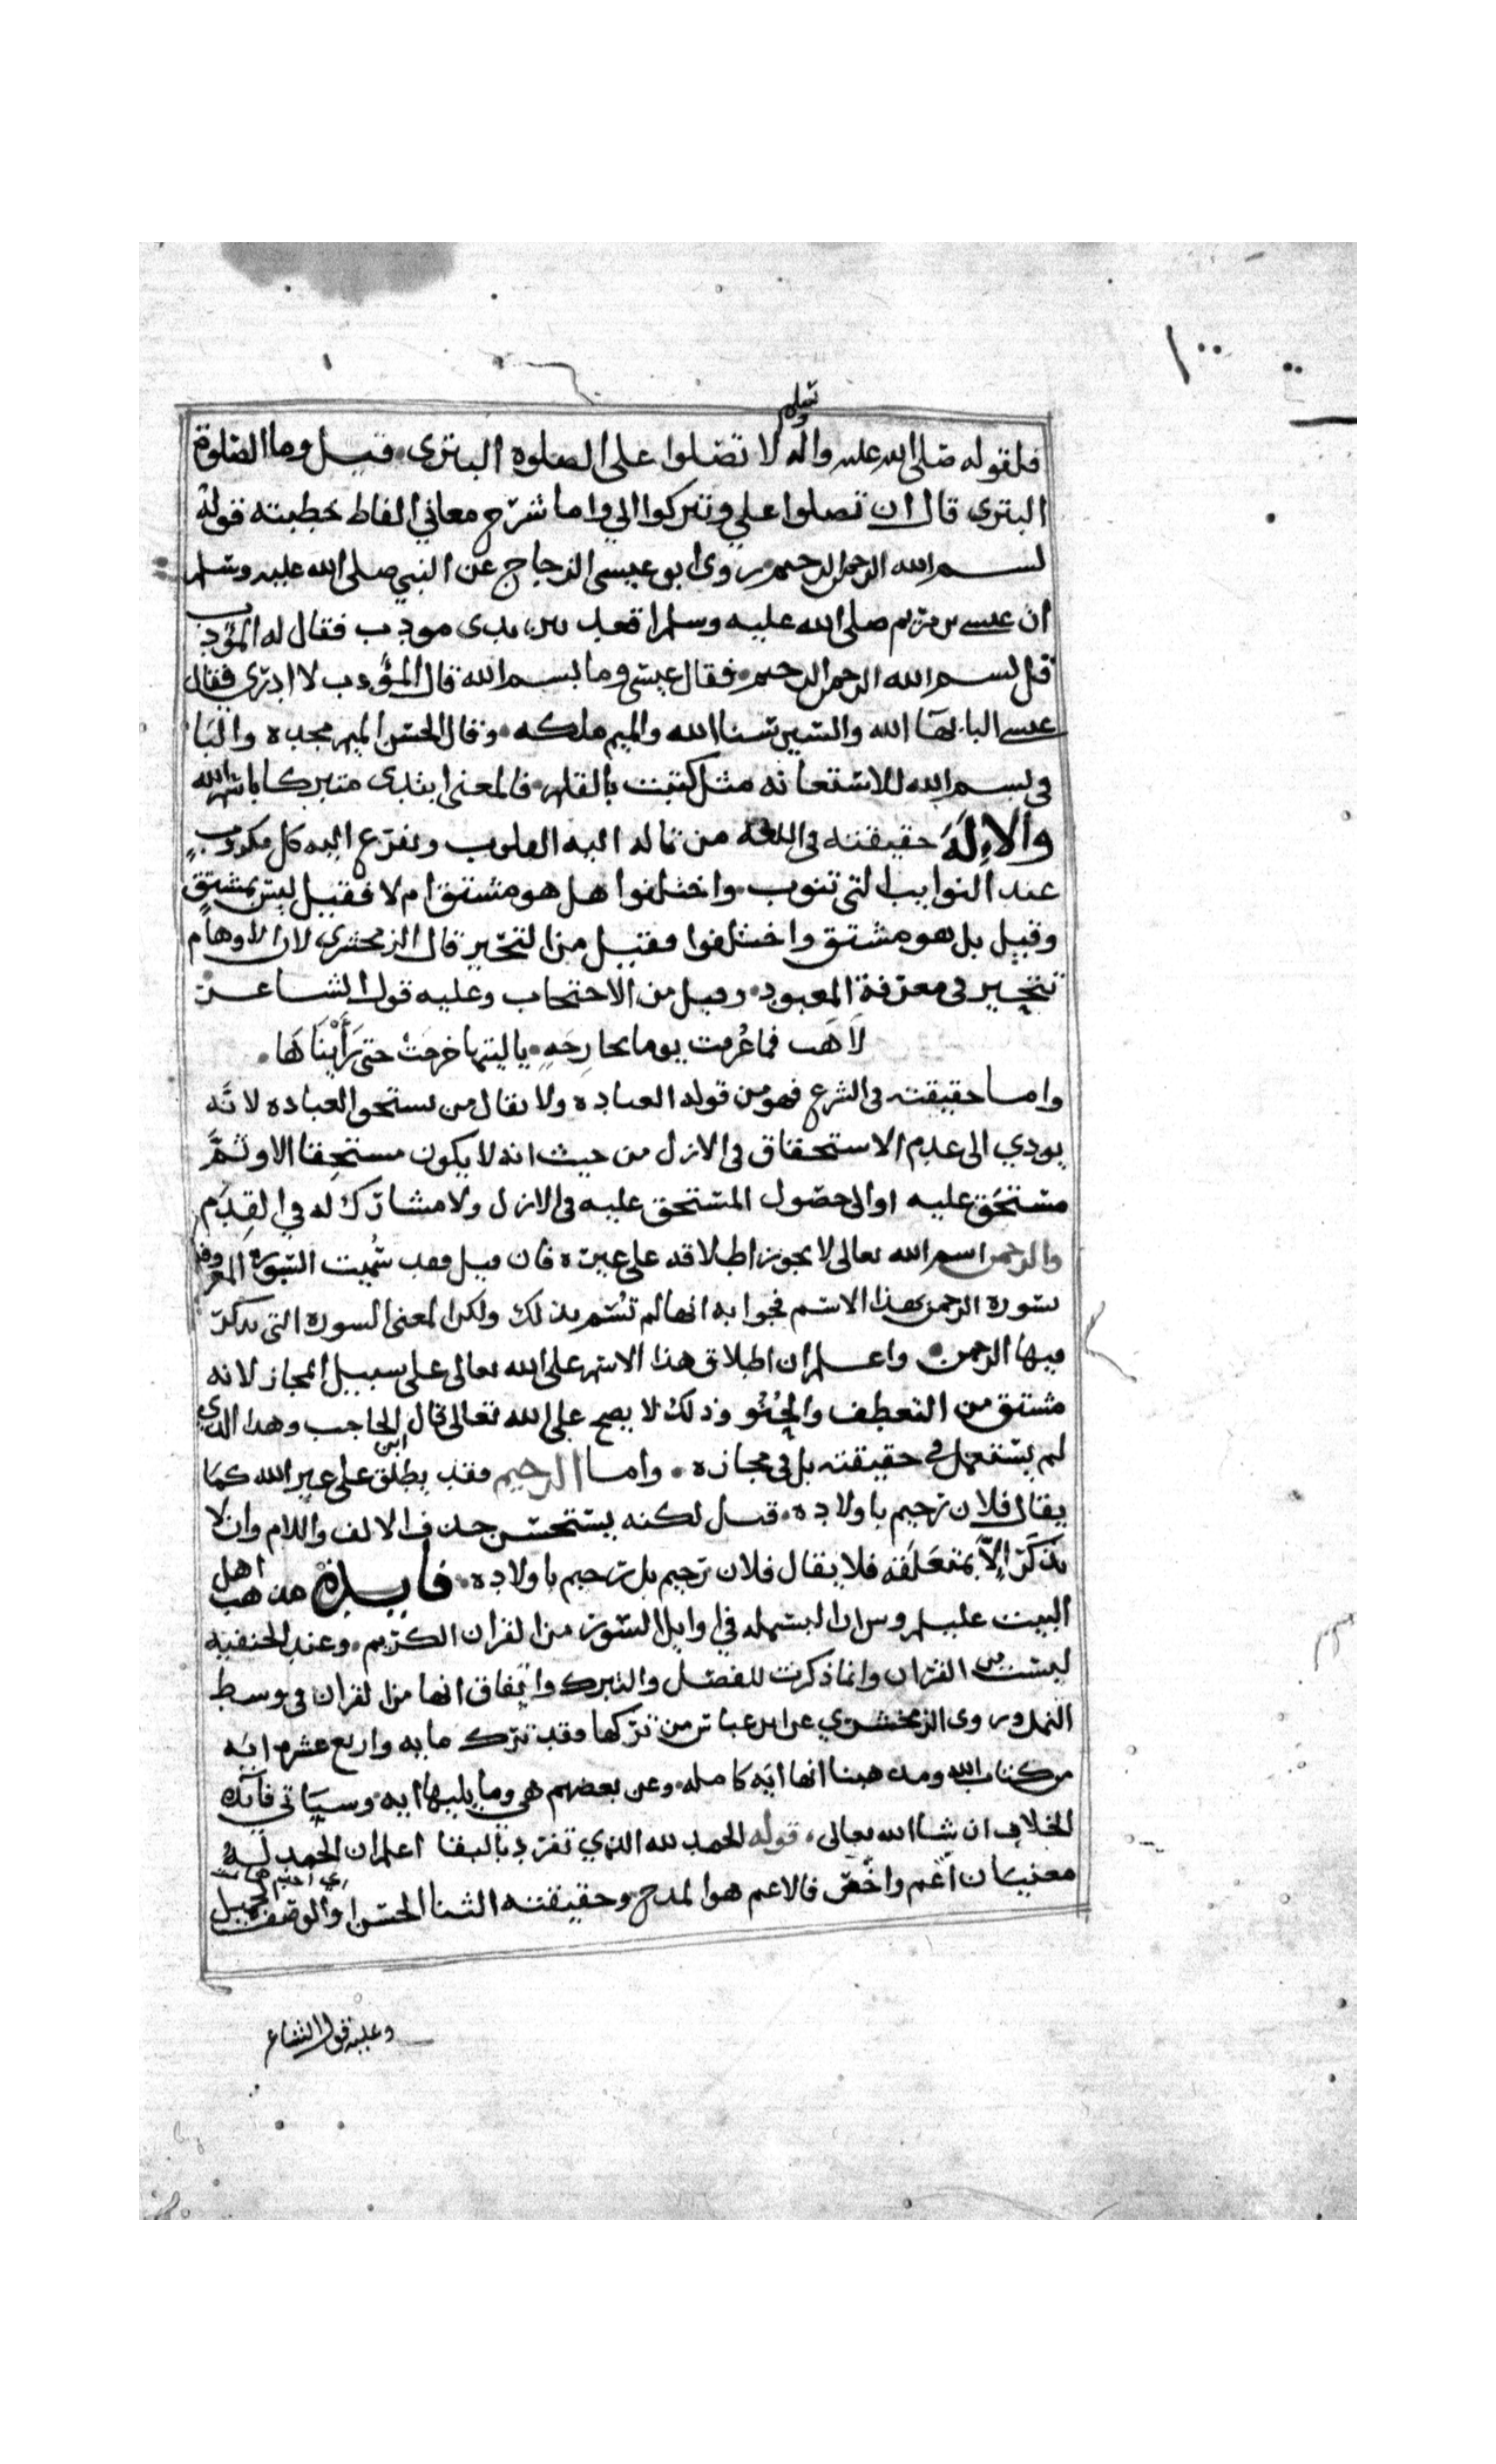 فلقوله صلى الله عليه واله وسلم لا تصلوا على الصلوه البترى قيل وما الصلوة
البترى قال ان تصلوا علي وتتركوا الي واما شرح معاني الفاظ خطبته فقوله
بسم الله الرحمن الرحيم روى ابو عيسى الزجاج عن النبي صلى الله عليه وسلم
ان عيسى بن مريم صلى الله عليه وسلم اقعد بين يدى مودب فقال له المؤدب
قل بسم الله الرحمن الرحيم فقال عيسى وما بسم الله قال المؤدب لا ادري فقال
عيسى البا بهآ الله والسين سنا الله والميم ملكه وقال الحسن الميم مجده والبا
في بسم الله للاستعانه مثل كتبت بالقلم فالمعنى ابتدى متبركا باسم الله
والإلَه حقيقته في اللغه من تاله اليه القلوب وتفزع اليه كل مكروب
عند النوايب التى تنوب واختلفوا هل هو مشتق ام لا فقيل ليس بمشتق
وقيل بل هو مشتق واختلفوا فقيل من التحير قال الزمخشري لان الاوهام
تتحير في معرفة المعبود وقيل من الاحتجاب وعليه قول الشاعر
لَاهَت فما عُرفت يوما بخارجةٍ ياليتها خرجت حتى رَأَيْنَاهَا
واما حقيقته في الشرع فهو من قوله العباده ولا يقال من يستحق العباده لانه
يودي الى عدم الاستحقاق في الازل من حيث انه لا يكون مستحقا الا وثَمَّ
مستحَق عليه او الى حصول المستحق عليه في الازل ولا مشارك له في القِدَم
والرحمن اسم الله تعالى لا يجوز اطلاقه على غيره فان قيل فقد سُميت السورة المعروفة
بسورة الرحمن بهذا الاسم فجوابه انها لم تُسَم بذلك ولكن المعنى السورة التى يذكر
فيها الرحمن واعلم ان اطلاق هذا الاسم على الله تعالى على سبيل المجاز لانه
مشتق من التعطف والحُنُو وذلك لا يصح على الله تعالى قال ابن الحاجب وهذا الذي
لم يستعمل في حقيقته بل في مجازه واما الرحيم فقد يطلق على غير الله كما
يقال فلان رحيم باولاده قيل لكنه يستحسن حذف الالف واللام وان لا
يذكَر إلاّ بمتعلَقه فلا يقال فلان رحيم بل رحيم باولاده فايدة مذهب اهل
البيت عليهم ان البسمله في اوايل السور من القران الكريم وعند الحنفيه
ليست من القران وانما ذكرت للفصل والتبرك واتفاق انها من القران في وسط
النمل وروى الزمخشري عن ابن عباس من تركها فقد ترك مايه واربع عشره ايه
من كتاب الله ومذهبنا انها ايه كامله وعن بعضهم هي وما يليها ايه وسياتى فايدة
الخلاف ان شا الله تعالى قوله الحمد لله الذي تفرد بالبقا اعلم ان الحمد لَهُ
معنيان اعم واخص فالاعم هو المدح وحقيقته الثنا الحسن او الوصف الجميل
وعليه قول الشاعر